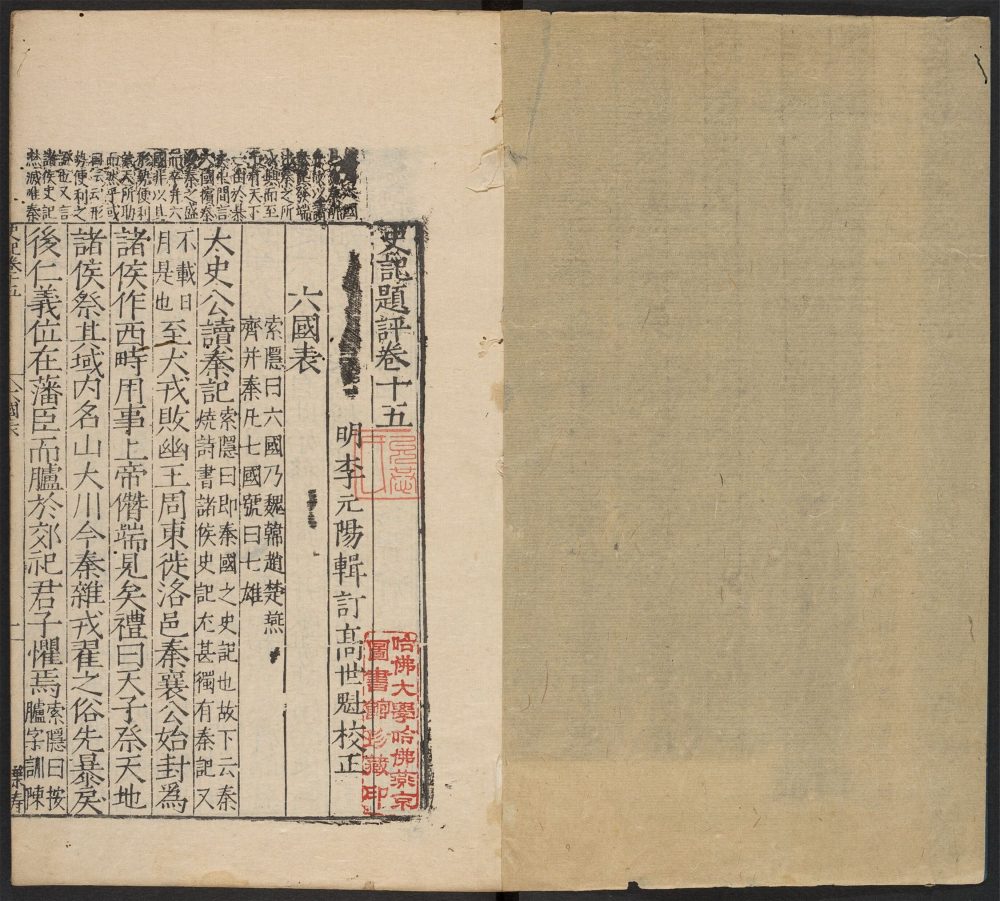 哈佛大學哈佛燕京
圖書館珍藏印
史記題評卷十五
明李元陽輯訂高世魁校正
六國表
索隱曰六國乃魏韓趙楚燕
齊并秦凡七國號曰七雄
太史公讀秦記
索隱曰即秦國之史記也故下云秦
燒詩書諸侯史記尤甚獨有秦記又
不載日
月是也
至犬戎敗幽王周東徙洛邑秦襄公始封為
諸侯作西畤用事上帝僭端見矣禮曰天子祭天地
諸侯祭其域内名山大川今秦雜戎翟之俗先暴戾
後仁義位在藩臣而臚於郊祀君子懼焉
索隱曰按
臚字訓陳
而卒并六
國非以其
形勢便利
而然乎或
勢便利之
證也又言
諸侯史記
史記卷十五
六國表
一